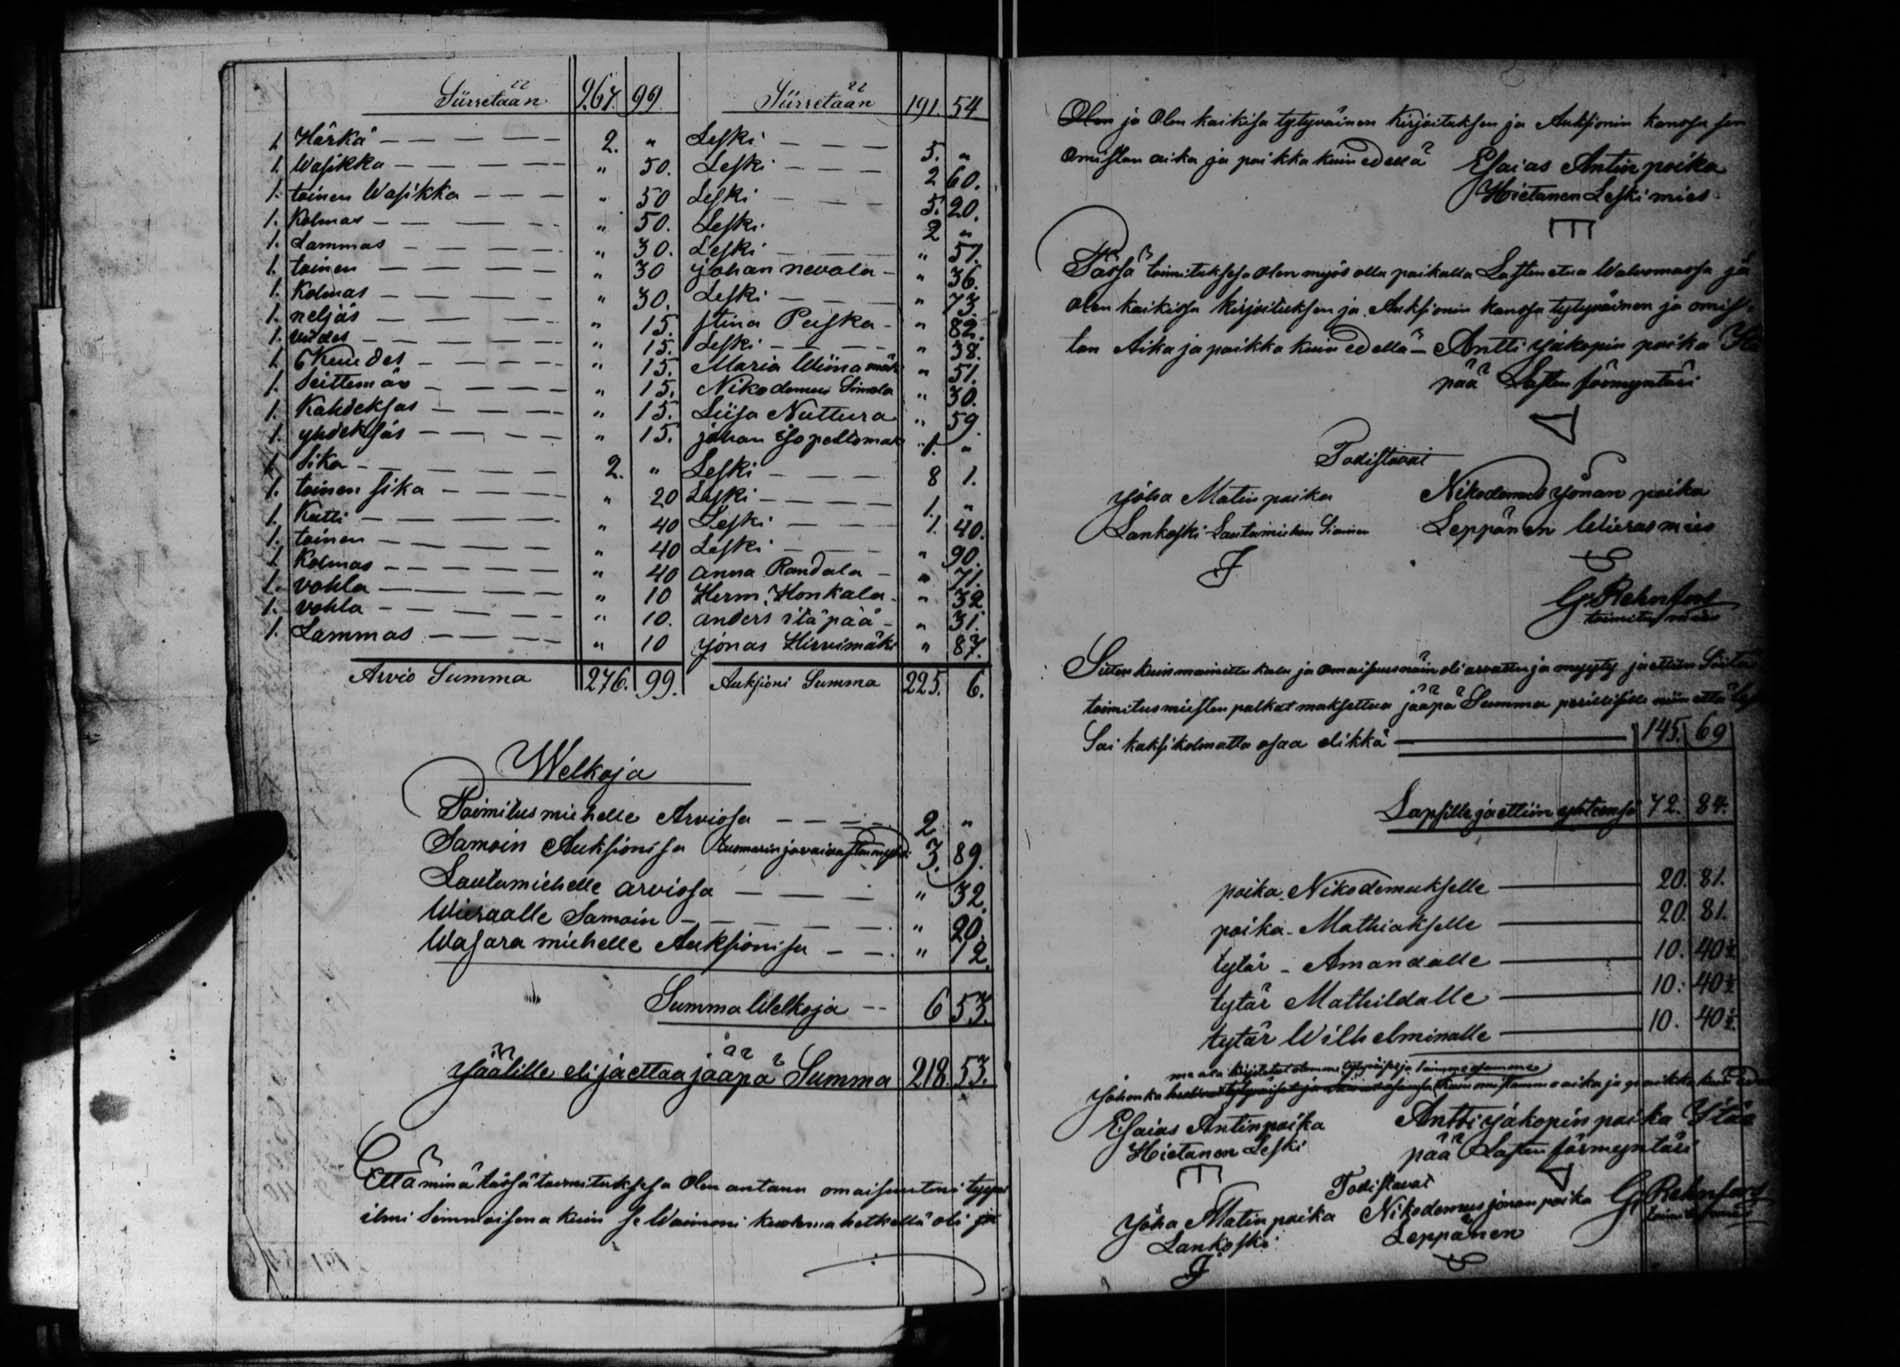 Siirretään 267. 99. Siirretään 191. 54
1. Härkä — — — 2. " Leski — — — 5. "
1. Wasikka — — — " 50. Leski — — — 2 60.
1. toinen Wasikka — — — " 50 Leski — — — 5. 20.
1. Kolmas — — — " 50. Leski 2 "
1. Lammas — — — " 30. Leski — — — " 57.
1. toinen — — — " 30 Johan nevala — " 36.
1. Kolmas — — — " 30. Leski — — — " 73.
1. neljäs — — — " 15. Stina Puska — " 82.
1. viides — — — " 15. Leski — — — " 38.
1. 6 Kuudes — — — " 15. Maria Wiinamäki " 51.
1. Seittemäs — — — " 15. Nikodemus " 30.
1. Kahdeksas — — — " 15. Liisa Nuttura " 59.
1. yhdeksäs — — — " 15. Johan isopeltomaa 1. "
1. Sika — — — 2. " Leski — — — 8 1.
1. toinen sika — — — " 20 Leski — — — 1. "
1. Kutti — — — " 40 Leski — — — 1. 40.
1. toinen — — — " 40 Leski — — — " 90.
1. Kolmas — — — " 40 Anna Randala — " 71.
1. vohla — — — " 10 Herm. Honkala " 32
1. vohla — — — " 10. anders itäpää — " 31.
1. Lammas — — — " 10 Jonas Hirvimäki " 87.
Arvio Summa 276. 99. Auksioni Summa 225. 6.
Welkoja
Toimitus miehelle Arviosa — — — 2 "
Samoin Auksionisa 3. 89.
Lautamiehelle arviosa — — — " 32.
Wieraalle Samoin — — — " 20.
Wasara miehelle Auksionisa — — " 12.
Summa Welkoja -- 6 53.
Jäälille eli jaettaa jääpä Summa 218 53.
Että minä täösä toimituksesa Olen antanu omaisuuteni
ilmi Semmoisena kuin se Waimoni kuolema hetkellä oli ja
Olen ja Olen kaikisa tytyväinen Kirjoituksen ja Auksionin kanssa sen
Omistan aika ja paikka kuin edellä Esaias Antin poika
Hietanen Leski mies.
Täösä toimituksesa olen myös ollu paikalla Lasten etua Walvomassa ja
olen kaikissa kirjoituksen ja Auksionin kanssa tytyväinen ja omis-
tan Aika ja paikka kuin edellä — Antti Jakopin poika
pää Lasten förmyntäri
Todistavat
Jöha Matin poika Nikodemus Jonan poika
Lankoski Lautamiehen Leppänen Wieras mies
G. Rehnfors
toimitus mies
Siten kuin mainittu kalu ja omaisuus näin oli arvattu ja myyty ja
toimitus miesten palkat maksettua jääpä Summa niin että
Sai kaksi kolmatta osaa elikkä — 145. 69
Lapsille jaettiin yhteensä 72. 84.
poika Nikodemukselle — 20. 81.
poika - Mathiakselle — 20. 81.
tytär - Amandalle — 10. 40½
tytär Mathildalle — 10. 40½
tytär Wilhelminalle — 10. 40½
Esaias Antinpoika Antti Jakopin poika Itä
Hietanen Leski pää Lasten förmyntäri
Todistavat
Jöha Matin poika Nikodemus jonan poika G. Rehnfors
Lankoski Leppänen toimitusmies